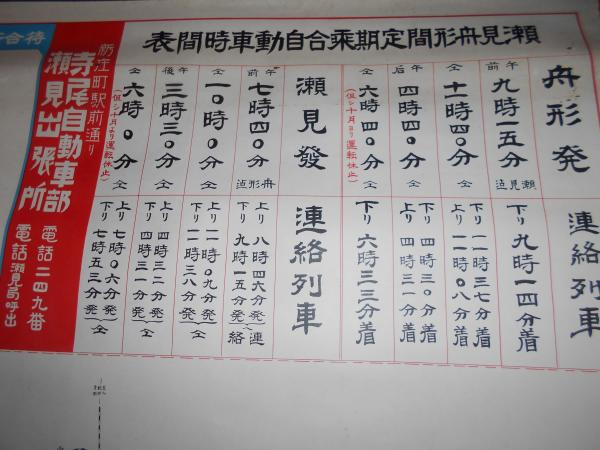 瀬見舟形間定期乗合自動車時間表
舟形発
午前九時一五分瀬見迄
仝十一時四〇分仝
午后四時四〇分仝
仝六時四〇分仝
(但シ十月ヨリ運転休止)
連絡列車
下リ九時一四分着
下リ一一時三七分着
上リ一一時〇八分着
下リ四時三〇分着
上リ四時三一分着
下リ六時三三分着
瀬見發
午前七時四〇分舟形迄
仝一〇時〇分仝
午後三時三〇分仝
仝六時〇分仝
(但シ十月より運転休止)
連絡列車
上リ八時四六分発
下リ九時一五分発
連絡
上リ一一時〇九分発
下リ一一時三八分発
仝
上リ四時三二分発
下リ四時三一分発
仝
上リ七時〇六分発
下リ七時五三分発
仝
新庄町駅前通り
寺尾自動車部
瀬見出張所
電話二四九番
電話瀬見局呼出
待合